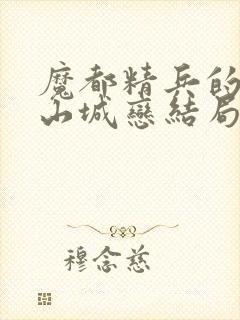 魔都精兵的
山城戀結局
穆念慈